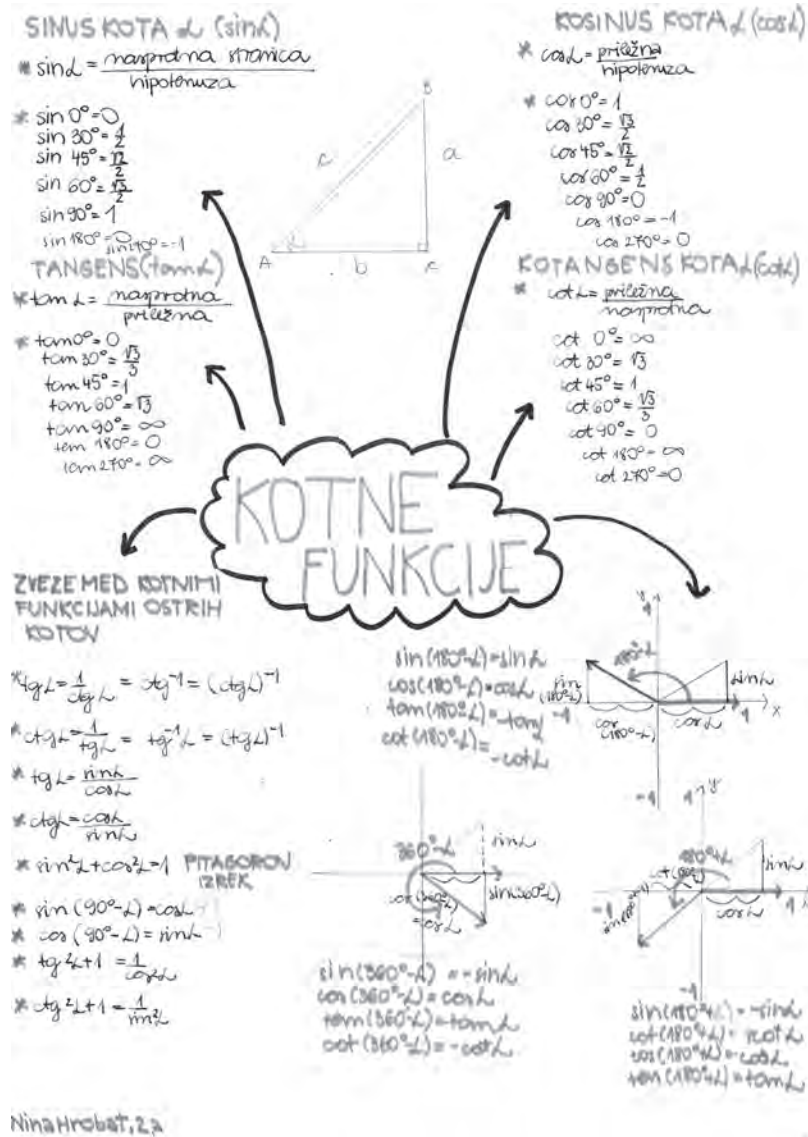 SINUS KOTA α (sinα)
* sinα = nasprotna stranica / hipotenuza
* sin 0° = 0
sin 30° = 1/2
sin 45° = √2/2
sin 60° = √3/2
sin 90° = 1
sin 180° = 0
sin 270° = -1
KOSINUS KOTA α (cosα)
* cosα = priležna / hipotenuza
* cos 0° = 1
cos 30° = √3/2
cos 45° = √2/2
cos 60° = 1/2
cos 90° = 0
cos 180° = -1
cos 270° = 0
B
c
a
α
A
b
c
TANGENS (tanα)
* tan α = nasprotna / priležna
* tan 0° = 0
tan 30° = √3/3
tan 45° = 1
tan 60° = √3
tan 90° = ∞
tan 180° = 0
tan 270° = ∞
KOTANGENS KOTA α (cotα)
* cotα = priležna / nasprotna
cot 0° = ∞
cot 30° = √3
cot 45° = 1
cot 60° = √3/3
cot 90° = 0
cot 180° = ∞
cot 270° = 0
KOTNE
FUNKCIJE
ZVEZE MED KOTNIMI
FUNKCIJAMI OSTRIH
KOTOV
* tgα = 1/ctgα = ctg⁻¹ = (ctgα)⁻¹
* ctgα = 1/tgα = tg⁻¹α = (tgα)⁻¹
* tgα = sinα/cosα
* ctgα = cosα/sinα
* sin²α + cos²α = 1 PITAGOROV
IZREK
* sin (90°-α) = cosα
* cos (90°-α) = sinα
* tg²α + 1 = 1/cos²α
* ctg²α + 1 = 1/sin²α
sin(180°-α) = sinα
cos(180°-α) = cosα
tan(180°-α) = -tanα
cot(180°-α) =
-cotα
y
1
180°-α
sin
(180°-α)
sinα
-1
cos
(180°-α)
cosα
1
x
-1
360°-α
sinα
cos(360°-α)
= cosα
sin(360°-α)
sin(360°-α) = -sinα
cos(360°-α) = cosα
tan(360°-α) = -tanα
cot(360°-α) = -cotα
1
y
180°+α
sinα
-1
sin(180°+α)
cosα
1
-1
sin(180°+α) = -sinα
cot(180°+α) = cotα
cos(180°+α) = -cosα
tan(180°+α) = tanα
Nina Hrobat, 2.a